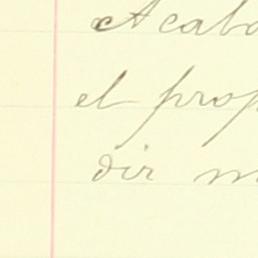 Acabo
el prop
dir m